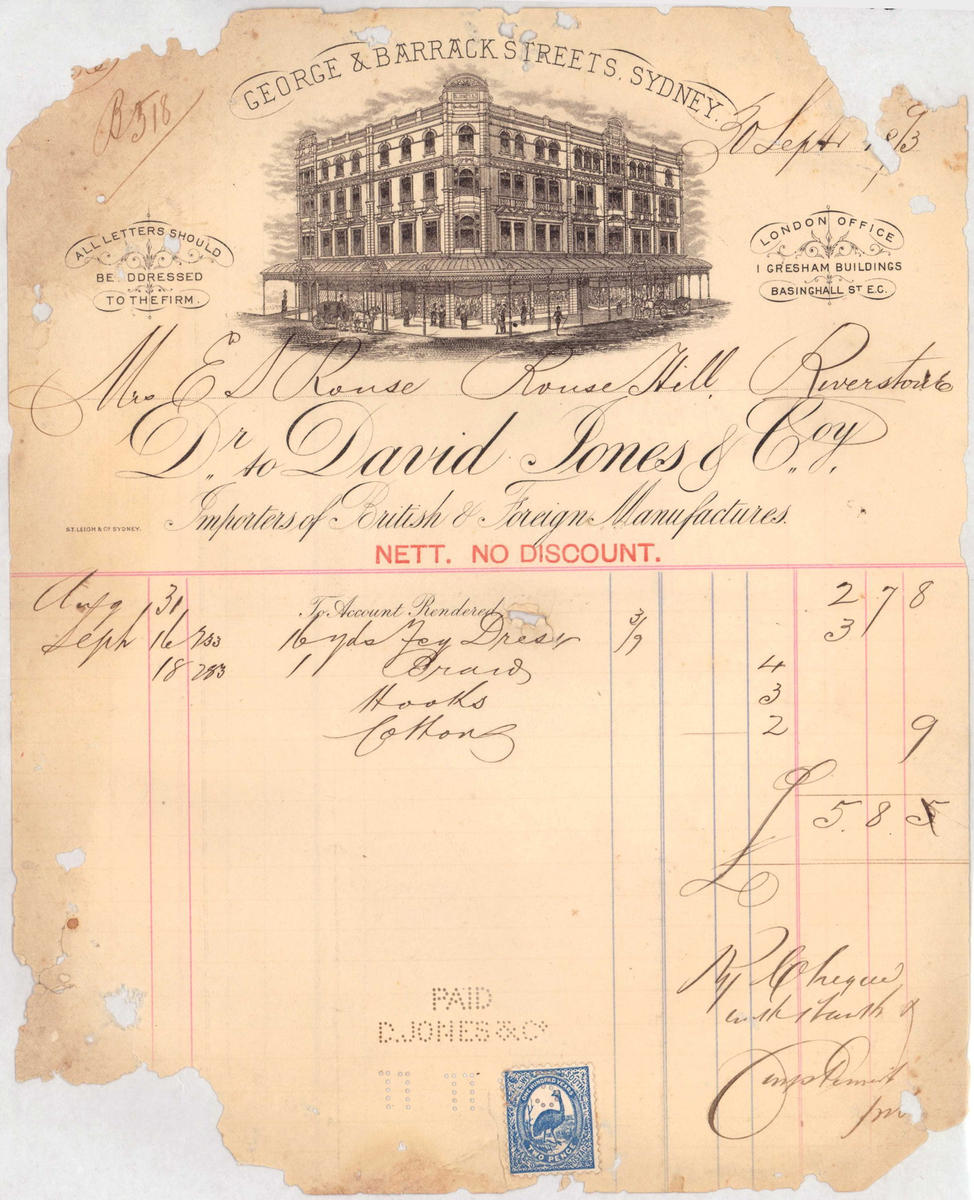 B 518
GEORGE & BARRACK STREETS, SYDNEY.
30 Sept 1893
ALL LETTERS SHOULD
BE ADDRESSED
TO THE FIRM.
LONDON OFFICE
1 GRESHAM BUILDINGS
BASINGHALL ST E.C.
Mrs E S Rouse Rouse Hill, Riverstone
Dr. to David Jones & Coy.
Importers of British & Foreign Manufactures.
S.T. LEIGH & Co SYDNEY.
NETT. NO DISCOUNT.
Aug 31 To Account Rendered 2 7 8
Sept 16 733 16 yds Fcy Dress 3/9 3
18 283 11 Braid 4
Hooks 3
Cotton 2 9
£ 5. 8. 5
By Cheque
with thanks &
Compliments
PAID
D. JONES & Co
11 11
ONE HUNDRED YEARS
TWO PENCE